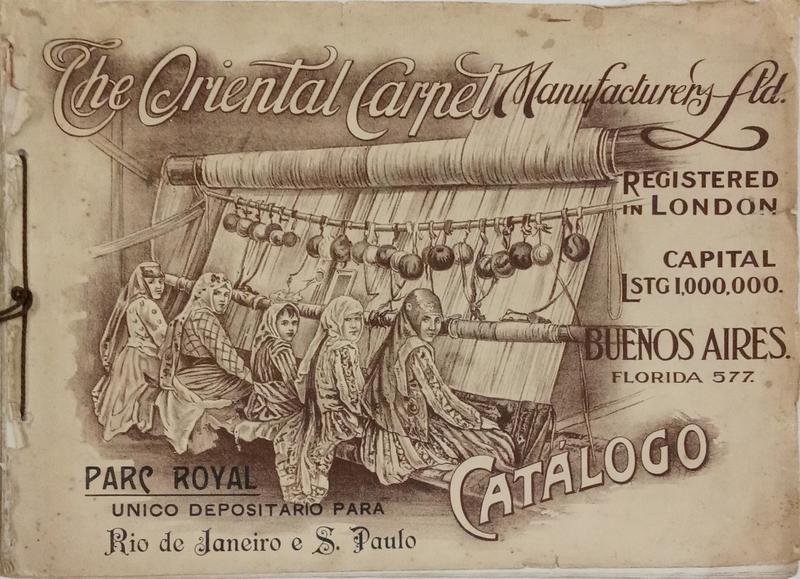 The Oriental Carpet Manufacturers Ltd.
REGISTERED
IN LONDON
CAPITAL
LSTG 1,000,000.
BUENOS AIRES.
FLORIDA 577.
CATÁLOGO
PARC ROYAL
UNICO DEPOSITARIO PARA
Rio de Janeiro e S. Paulo